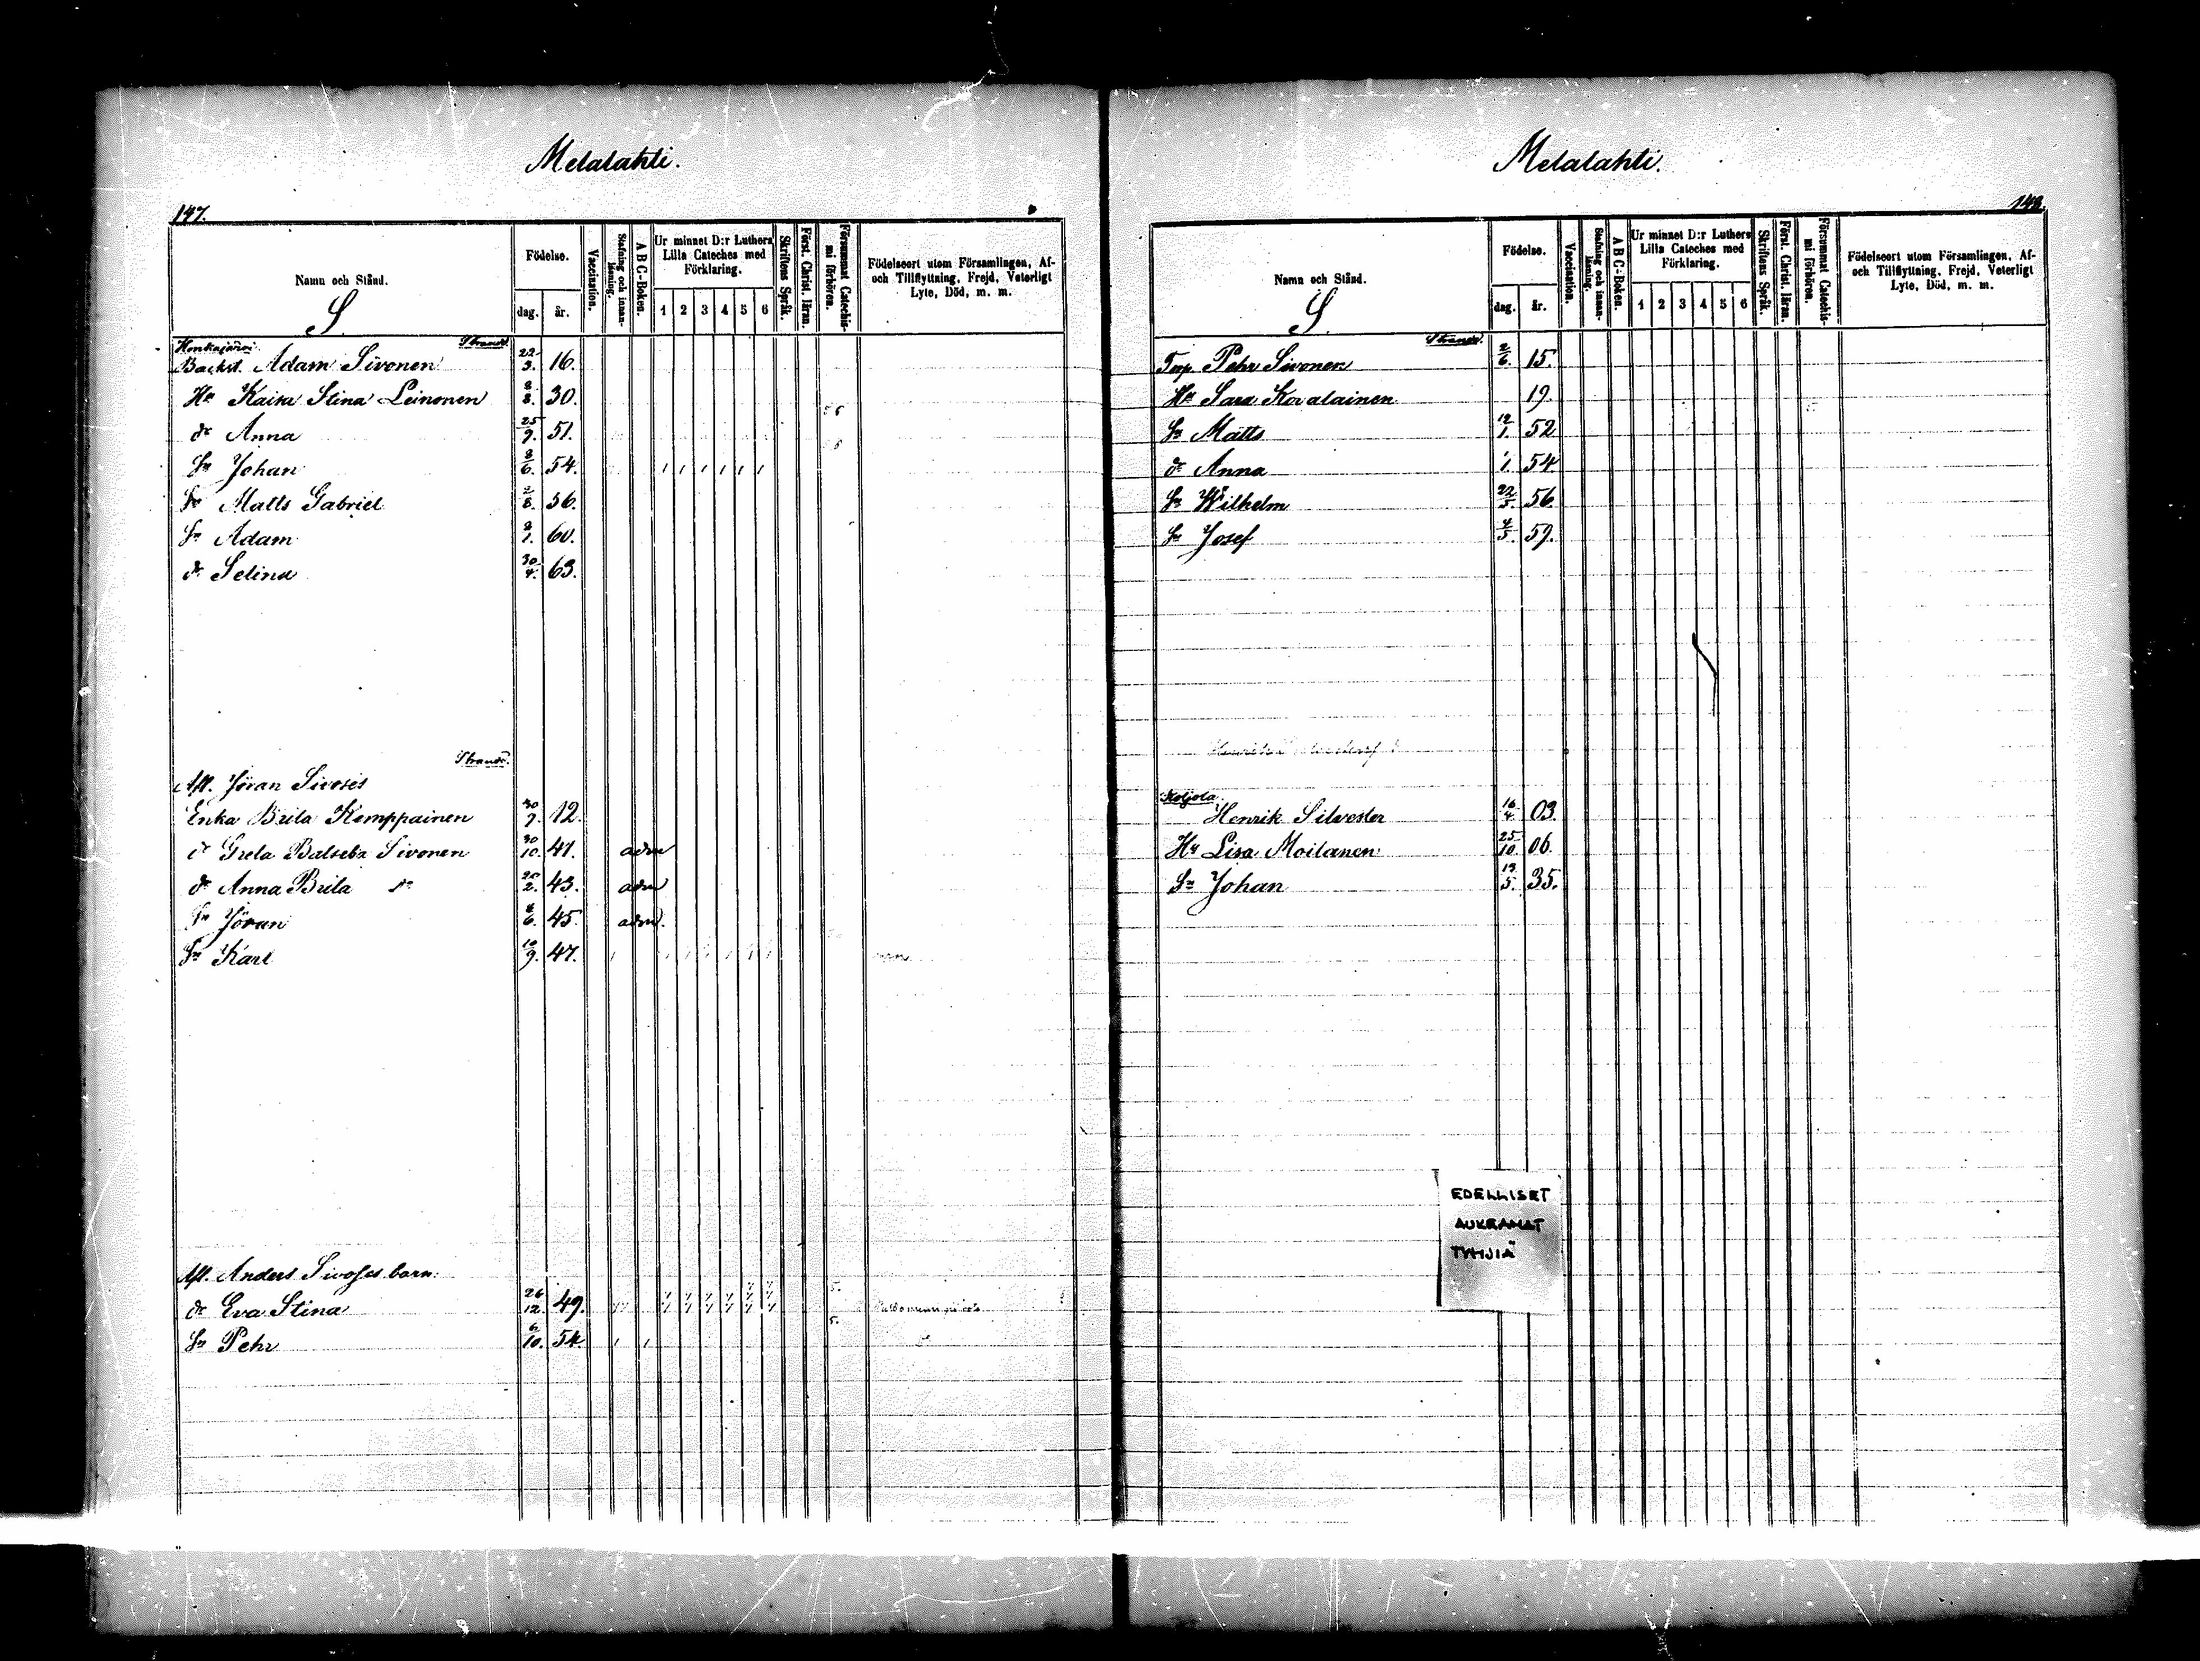 Melalahti.
147.
Namn och Stånd.
S.
Födelse.
dag. år.
Vaccination.
Stafning och innanläsning.
A B C-Boken.
Ur minnet D:r Luthers Lilla Cateches med Förklaring.
1 2 3 4 5 6
Skriftens Språk.
Först. Christ. läran.
Försummat Catechismi förhören.
Födelseort utom Församlingen, Af- och Tillflyttning, Frejd, Veterligt Lyte, Död, m. m.
Honkajärvi.
Backst. Adam Sivonen 22/3. 16.
Hu Kaisa Stina Leinonen 8/8. 30.
dr Anna 25/9. 51.
Sn Johan 8/6. 54.
Sn Matts Gabriel 2/8. 56.
Sn Adam 2/1. 60.
dr Selina 30/4. 63.
Afl. Jöran Sivoses
Enka Brita Kemppainen 30/7. 12.
dr Greta Batseba Sivonen 30/10. 41. adm
dr Anna Brita dr 20/2. 43. adm
Sn Jöran 6. 45. adm.
Sn Karl 10/9. 47.
Afl. Anders Sivoses barn:
dr Eva Stina 26/12. 49. 5.
Sn Pehr 6/10. 54. 5.
Melalahti.
148.
Namn och Stånd.
S.
Födelse.
dag. år.
Vaccination.
Stafning och innanläsning.
A B C-Boken.
Ur minnet D:r Luthers Lilla Cateches med Förklaring.
1 2 3 4 5 6
Skriftens Språk.
Först. Christ. läran.
Försummat Catechismi förhören.
Födelseort utom Församlingen, Af- och Tillflyttning, Frejd, Veterligt Lyte, Död, m. m.
Torp. Pehr Sivonen 2/6. 15.
Hu Sara Kovalainen 19.
Sn Matts 12/1. 52
dr Anna 1. 54
Sn Wilhelm 22/5. 56.
Sn Josef 4/5. 59.
Koljola.
Henrik Silvester 16/4. 03.
Hu Lisa Moilanen 25/10. 06.
Sn Johan 13/5. 35.
EDELLISET
AUKEAMAT
TYHJIÄ